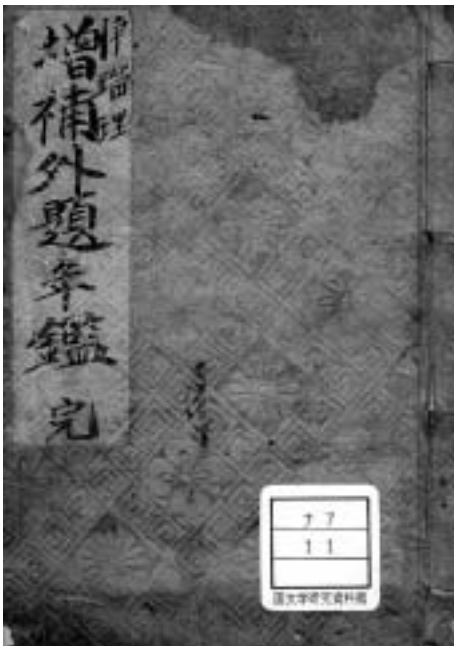 浄瑠理
増補外題年鑑 完
ナ7
11
国文学研究資料館